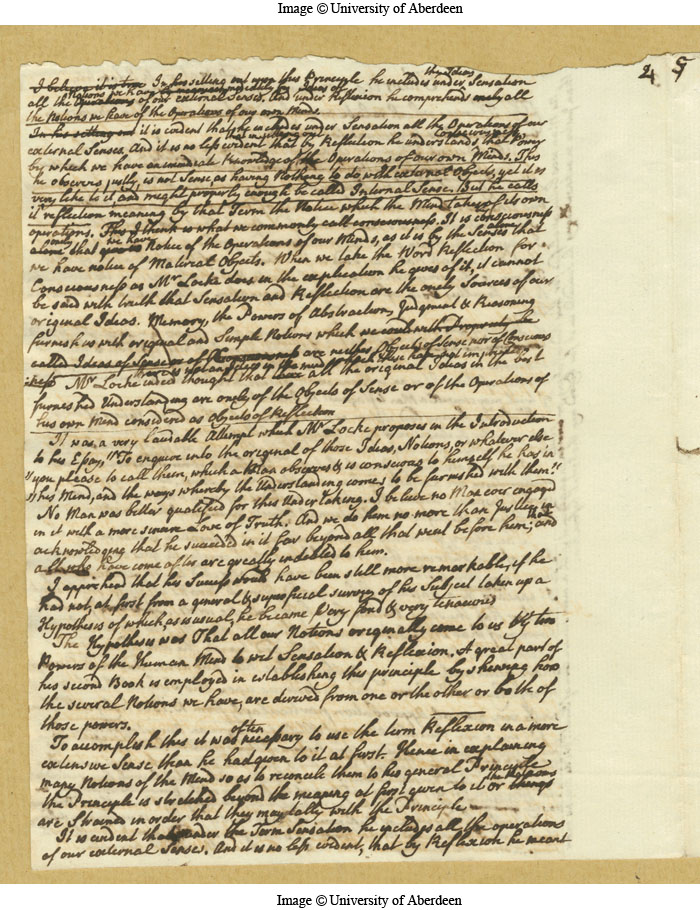 Image © University of Aberdeen
24 5
I believe it is true In his setting out upon this Principle he includes under Sensation the Ideas
all the Notions we have by means of the Operations of our external Senses, And under Reflexion he comprehends onely all
the Notions we have of the Operations of our own Minds.
In his setting out it is evident that he includes under Sensation all the Operations of our
external Senses. And it is no less evident that by Reflection he understands that Power
by which we have an immediate Knowledge of the Operations of our own Minds. This
he observes justly, is not Sense as having Nothing to do with external Objects, yet it is
very like to it and might properly enough be called Internal Sense. But he calls
it reflection meaning by that Term the Notice which the Mind takes of its own
operations. This I think is what we commonly call consciousness. It is consciousness
alone that Notice of the Operations of our Minds, as it is by the Senses alone that
we have notice of Material Objects. When we take the Word Reflection for
Consciousness as Mr Locke does in the explication he gives of it, it cannot
be said with truth that Sensation and Reflection are the onely Sources of our
original Ideas. Memory, the Powers of Abstraction, Judgment & Reasoning
furnish us with original and Simple Notions which
called Ideas of are neither Objects of Sense nor of Conscious
ness Mr Locke indeed thought that all the original Ideas in the best
furnished Understanding are onely of the Objects of Sense or of the Operations of
his own Mind considered as Objects of Reflection
It was a very laudable Attempt which Mr Locke proposes in the Introduction
to his Essay, "To enquire into the original of those Ideas, Notions, or whatever else
" you please to call them, which a Man observes & is conscious to himself he has in
" his Mind, and the ways whereby the Understanding comes to be furnished with them."
No Man was better qualified for this Undertaking. I believe no Man ever engaged
in it with a more sincere Love of Truth. And we do him no more than Justice in
acknowledging that he succeeded in it far beyond all that went before him; and that
all who have come after are greatly indebted to him.
I apprehend that his Success would have been still more remarkable, if he
had not, at first from a general & superficial survey of his Subject taken up a
Hypothesis of which, as is usual, he became very fond & very tenacious
The Hypothesis was That all our Notions originally come to us by two
Powers of the Human Mind to wit Sensation & Reflexion. A great part of
his second Book is employed in establishing this principle by shewing how
the several Notions we have, are derived from one or the other or both of
those powers.
To accomplish this it was often necessary to use the term Reflexion in a more
extensive Sense than he had given to it at first. Hence in explaining
many Notions of the Mind so as to reconcile them to his general Principle
the Principle is stretched beyond the meaning at first given to it or the Notions
are Strained in order that they may tally with the Principle
It is evident that under the Term Sensation he includes all the operations
of our external Senses. And it is no less evident, that by Reflexion he meant
Image © University of Aberdeen